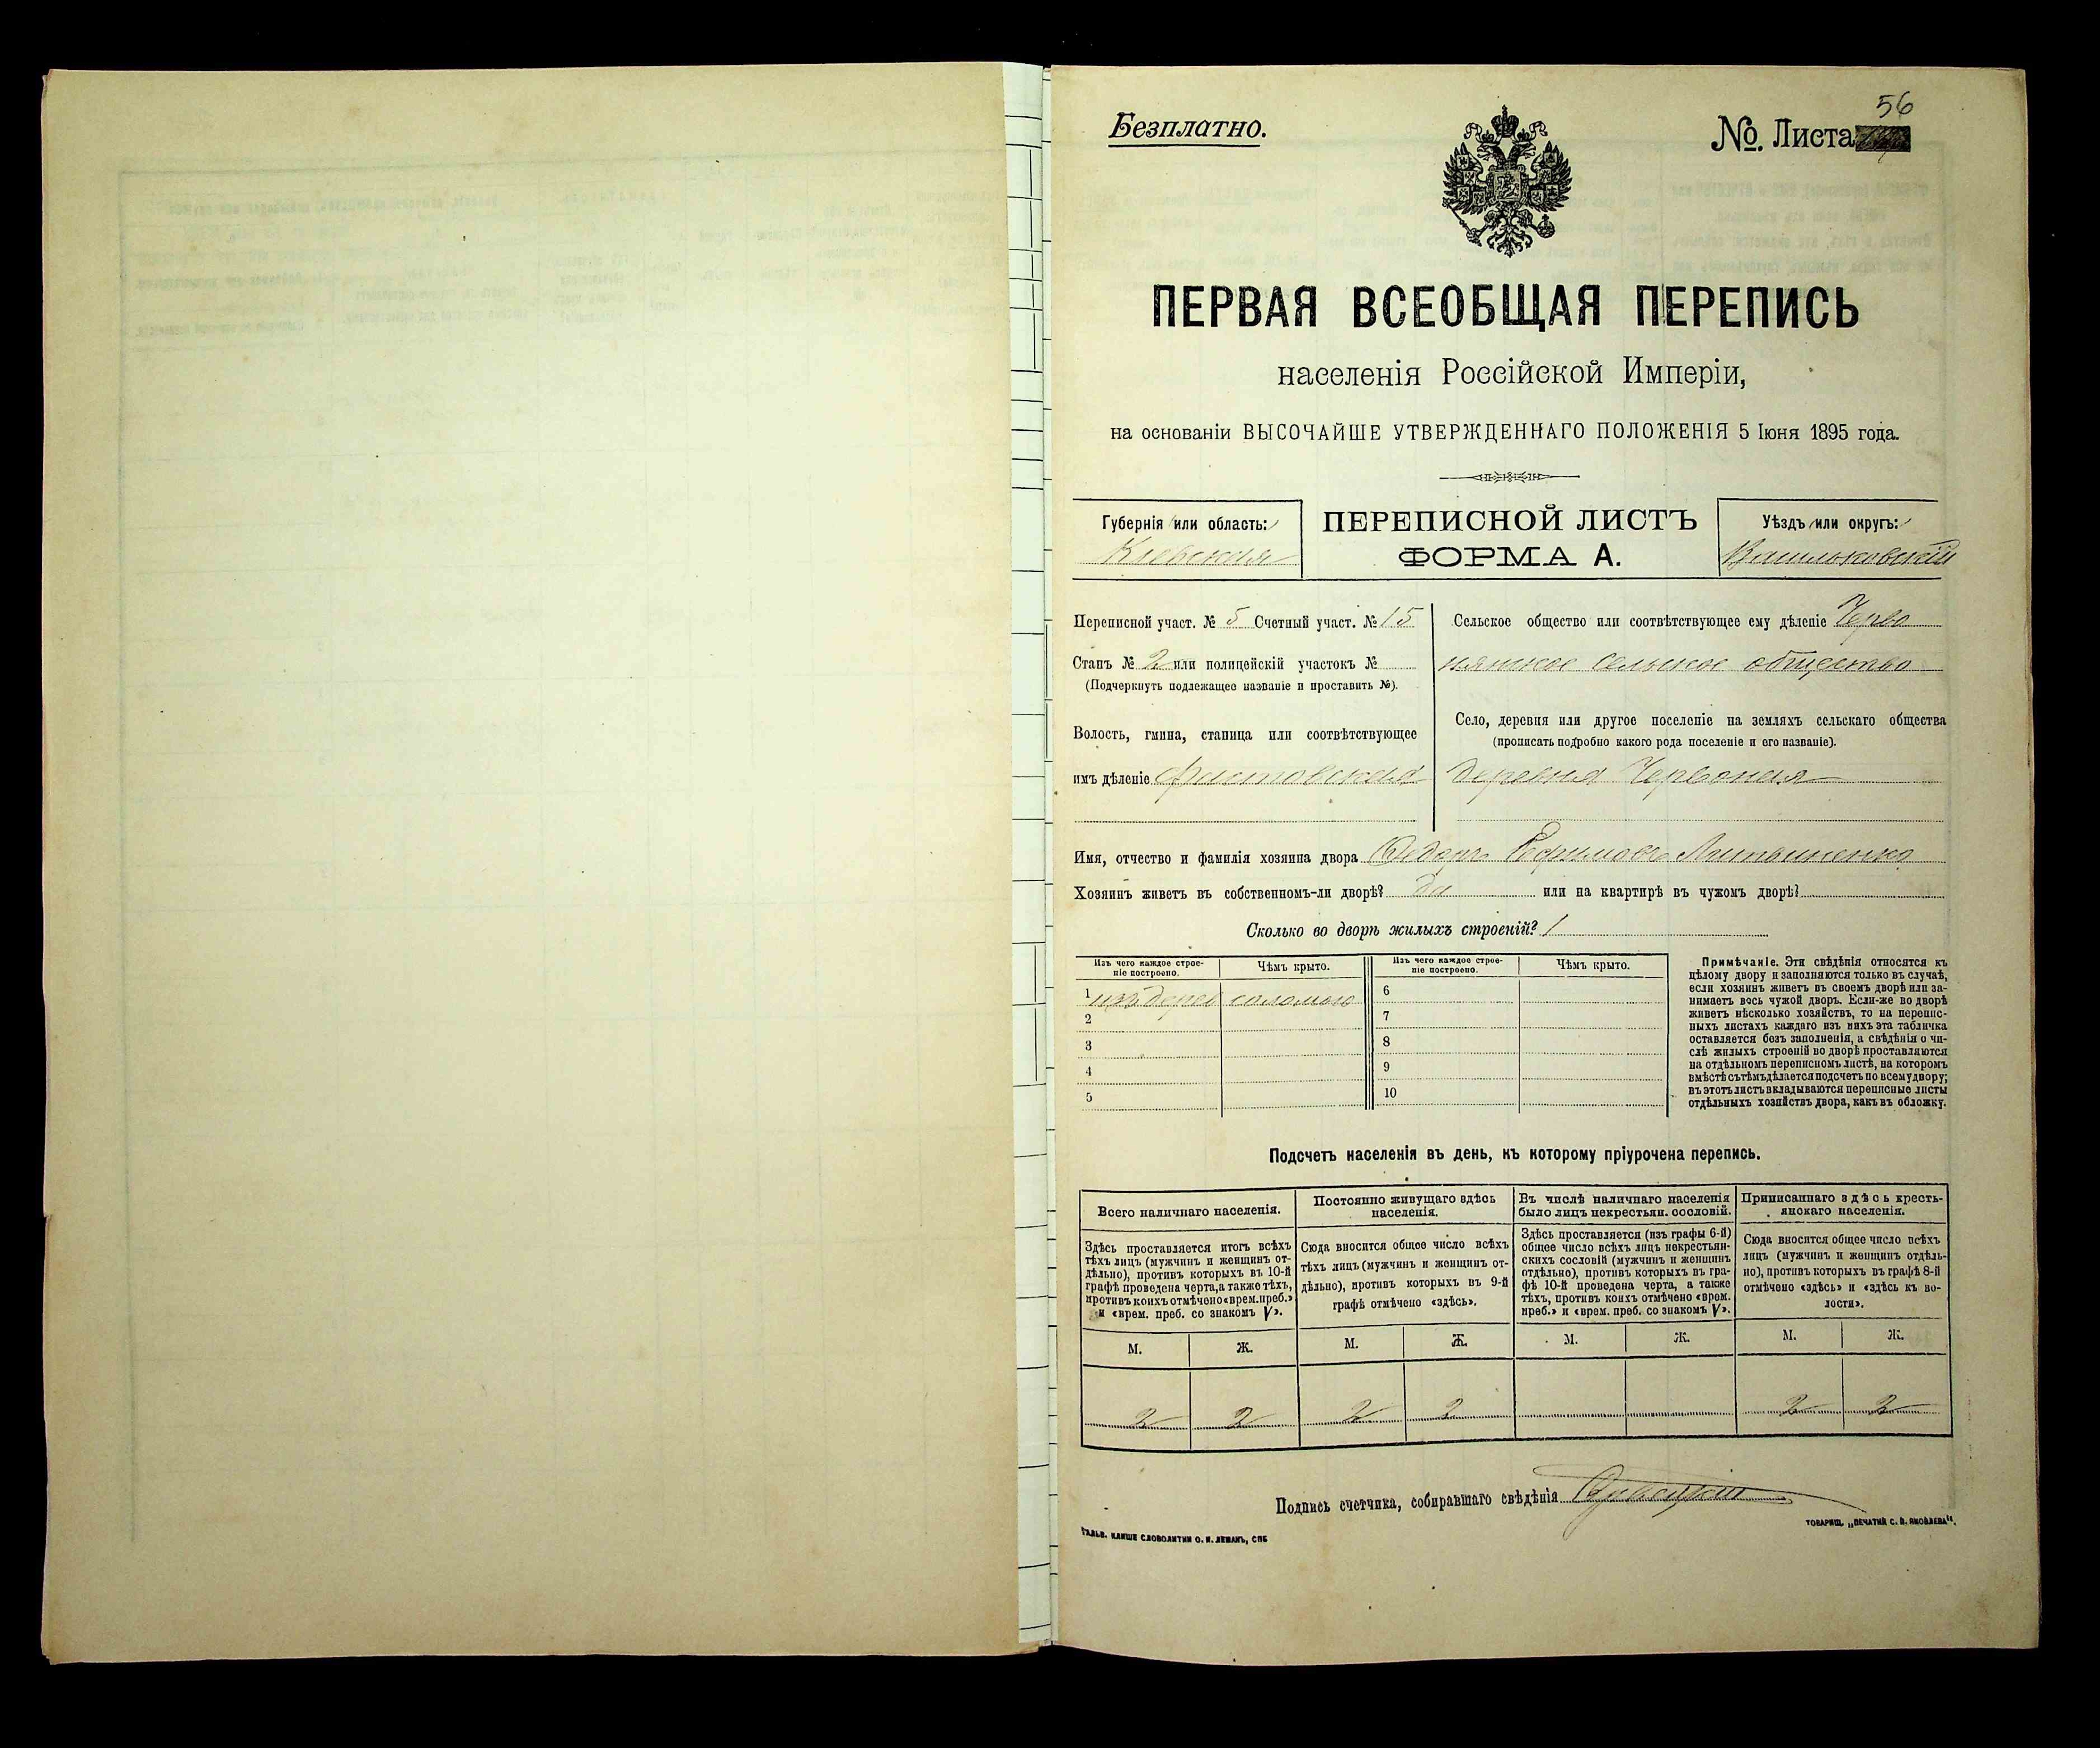 56
Безплатно.
№. Листа
ПЕРВАЯ ВСЕОБЩАЯ ПЕРЕПИСЬ
населенія Россійской Имперіи,
на основаніи ВЫСОЧАЙШЕ УТВЕРЖДЕННАГО ПОЛОЖЕНІЯ 5 Іюня 1895 года.
Губернія или область:
Кіевская
ПЕРЕПИСНОЙ ЛИСТЪ
ФОРМА А.
Уѣздъ или округъ:
Васильковскій
Переписной участ. № 5 Счетный участ. № 15
Станъ № 2 или полицейскій участокъ №
(Подчеркнуть подлежащее названіе и проставить №).
Волость, гмина, станица или соотвѣтствующее
имъ дѣленіе Фастовская
Сельское общество или соотвѣтствующее ему дѣленіе Черво
нянское сельское общество
Село, деревня или другое поселеніе на земляхъ сельскаго общества
(прописать подробно какого рода поселеніе и его названіе).
деревня Червоная
Имя, отчество и фамилія хозяина двора Федоръ Ефимовъ
Хозяинъ живетъ въ собственномъ-ли дворѣ? да или на квартирѣ въ чужомъ дворѣ?
Сколько во дворѣ жилыхъ строеній? 1
Изъ чего каждое строе-
ніе построено.
Чѣмъ крыто.
1 изъ дерев соломою
2
3
4
5
Изъ чего каждое строе-
ніе построено.
Чѣмъ крыто.
6
7
8
9
10
Примѣчаніе. Эти свѣдѣнія относятся къ
цѣлому двору и заполняются только въ случаѣ,
если хозяинъ живетъ въ своемъ дворѣ или за-
нимаетъ весь чужой дворъ. Если-же во дворѣ
живетъ нѣсколько хозяйствъ, то на перепис-
ныхъ листахъ каждаго изъ нихъ эта табличка
оставляется безъ заполненія, а свѣдѣнія о чи-
слѣ жилыхъ строеній во дворѣ проставляются
на отдѣльномъ переписномъ листѣ, на которомъ
вмѣстѣ съ тѣмъ дѣлается подсчетъ по всему двору;
въ этотъ листъ вкладываются переписные листы
отдѣльныхъ хозяйствъ двора, какъ въ обложку.
Подсчетъ населенія въ день, къ которому пріурочена перепись.
Всего наличнаго населенія.
Здѣсь проставляется итогъ всѣхъ
тѣхъ лицъ (мужчинъ и женщинъ от-
дѣльно), противъ которыхъ въ 10-й
графѣ проведена черта, а также тѣхъ,
противъ коихъ отмѣчено «врем. преб.»
и «врем. преб. со знакомъ V».
М. Ж.
2 2
Постоянно живущаго здѣсь
населенія.
Сюда вносится общее число всѣхъ
тѣхъ лицъ (мужчинъ и женщинъ от-
дѣльно), противъ которыхъ въ 9-й
графѣ отмѣчено «здѣсь».
М. Ж.
2 2
Въ числѣ наличнаго населенія
было лицъ некрестьян. сословій.
Здѣсь проставляется (изъ графы 6-й)
общее число всѣхъ лицъ некрестьян-
скихъ сословій (мужчинъ и женщинъ
отдѣльно), противъ которыхъ въ гра-
фѣ 10-й проведена черта, а также
тѣхъ, противъ коихъ отмѣчено «врем.
преб.» и «врем. преб. со знакомъ V».
М. Ж.
Приписаннаго здѣсь кресть-
янскаго населенія.
Сюда вносится общее число всѣхъ
лицъ (мужчинъ и женщинъ отдѣль-
но), противъ которыхъ въ графѣ 8-й
отмѣчено «здѣсь» и «здѣсь къ во-
лости».
М. Ж.
2 2
Подпись счетчика, собиравшаго свѣдѣнія
ГАЛЬВ. КЛИШЕ СЛОВОЛИТНИ О. И. ЛЕМАНЪ, СПБ
ТОВАРИЩ. „ПЕЧАТНЯ С. П. ЯКОВЛЕВА".